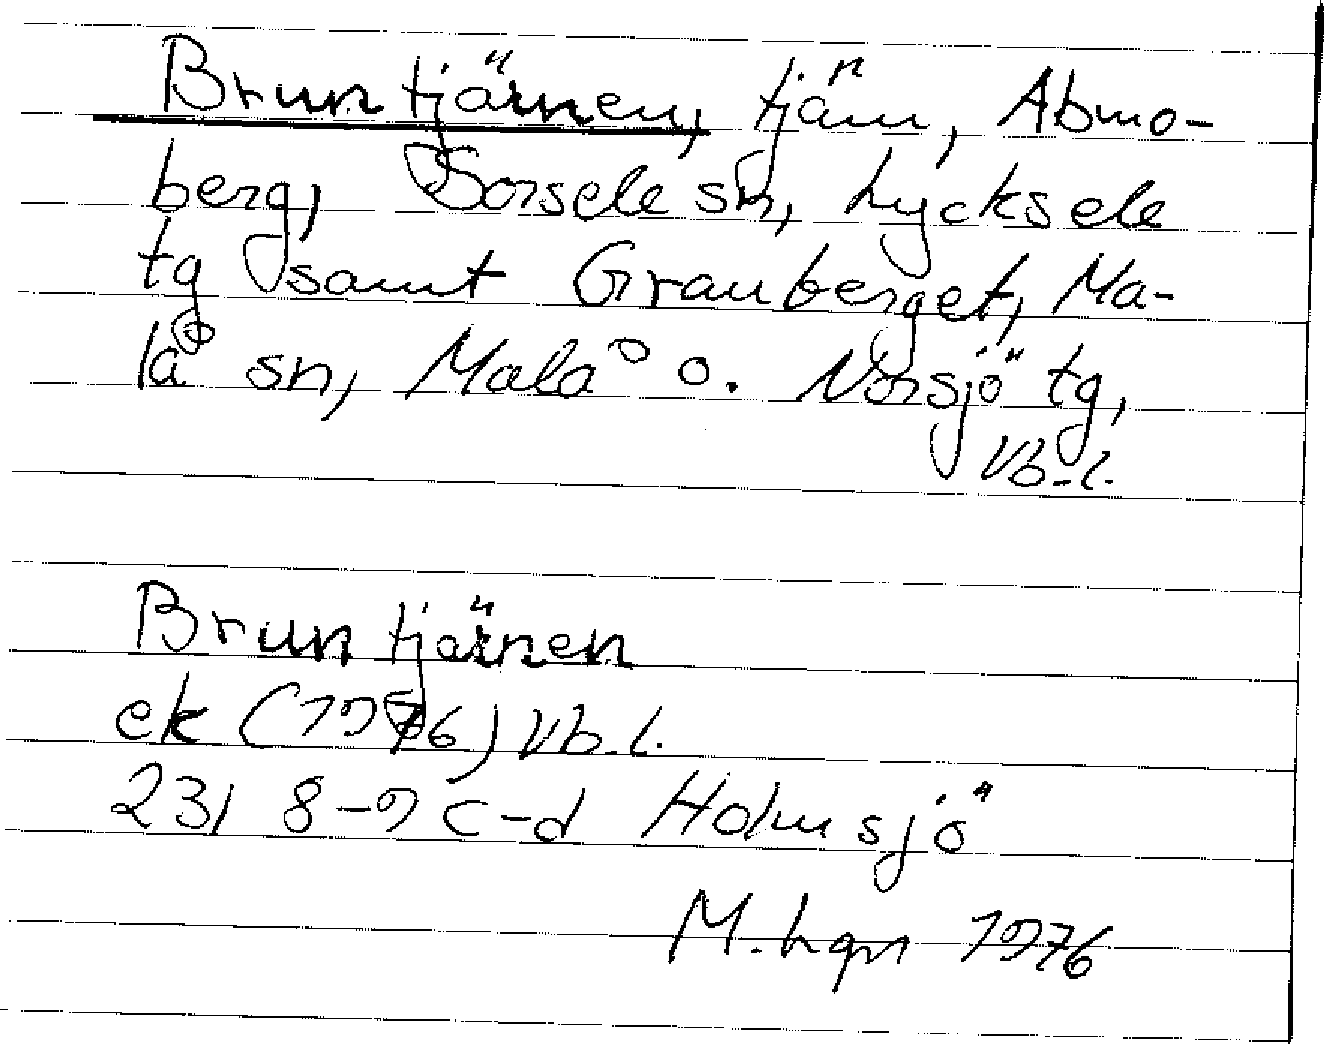 Bruntjärnen, tjärn, Abmo-
berg, Sorsele sn, Lycksele
tg samt Granberget, Ma-
lå sn, Malå o. Norsjö tg,
Vb.l.
Bruntjärnen
ek (1976) Vb.l.
231 8-9 c-d Holmsjö
M. Lgn 1976